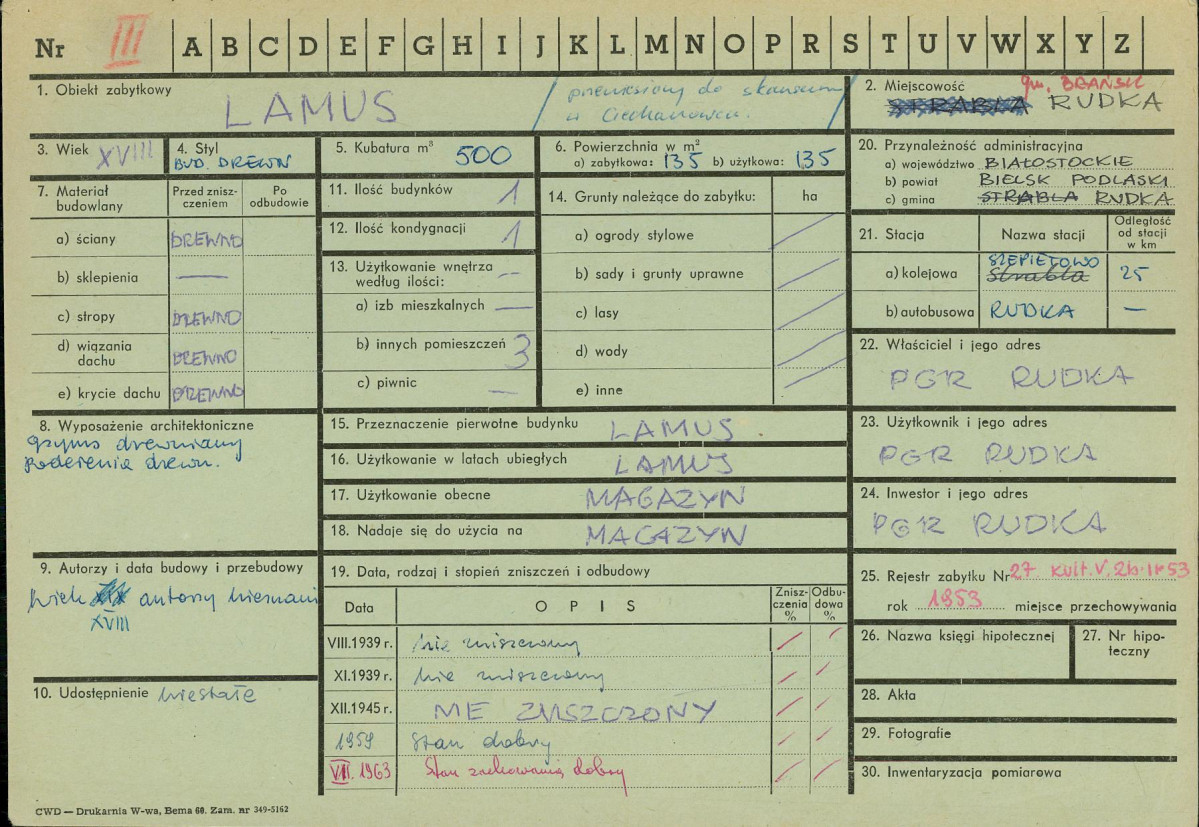 Nr III A B C D E F G H I J K L M N O P R S T U V W X Y Z
1. Obiekt zabytkowy LAMUS
/ przeniesiony do skansenu /
w Ciechanowcu.
2. Miejscowość gm. BRAŃSK
STRABLA RUDKA
3. Wiek XVIII
4. Styl
BUD. DREWN
5. Kubatura m³ 500
6. Powierzchnia w m²
a) zabytkowa: 135 b) użytkowa: 135
20. Przynależność administracyjna
a) województwo BIAŁOSTOCKIE
b) powiat BIELSK PODLASKI
c) gmina STRABLA RUDKA
7. Materiał budowlany
Przed zniszczeniem
Po odbudowie
a) ściany DREWNO
b) sklepienia —
c) stropy DREWNO
d) wiązania dachu DREWNO
e) krycie dachu DREWNO
11. Ilość budynków 1
12. Ilość kondygnacji 1
13. Użytkowanie wnętrza według ilości: —
a) izb mieszkalnych —
b) innych pomieszczeń 3
c) piwnic —
14. Grunty należące do zabytku: ha
a) ogrody stylowe /
b) sady i grunty uprawne /
c) lasy /
d) wody /
e) inne /
21. Stacja
Nazwa stacji
Odległość od stacji w km
SZEPIETOWO
a) kolejowa Strabla 25
b) autobusowa RUDKA —
22. Właściciel i jego adres
PGR RUDKA
8. Wyposażenie architektoniczne
gzyms drewniany
podcienia drewn.
15. Przeznaczenie pierwotne budynku LAMUS.
16. Użytkowanie w latach ubiegłych LAMUS
17. Użytkowanie obecne MAGAZYN
18. Nadaje się do użycia na MAGAZYN
23. Użytkownik i jego adres
PGR RUDKA
24. Inwestor i jego adres
PGR RUDKA
9. Autorzy i data budowy i przebudowy
wiek XIX autorzy nieznani
XVIII
10. Udostępnienie niestałe
19. Data, rodzaj i stopień zniszczeń i odbudowy
Data
OPIS
Zniszczenia %
Odbudowa %
VIII.1939 r. nie zniszczony / /
XI.1939 r. nie zniszczony / /
XII.1945 r. NIE ZNISZCZONY / /
1959 Stan dobry / /
VII. 1963 Stan zachowania dobry / /
25. Rejestr zabytku Nr 27 Kult.V.2b.1r53
rok 1953 miejsce przechowywania
26. Nazwa księgi hipotecznej
27. Nr hipoteczny
28. Akta
29. Fotografie
30. Inwentaryzacja pomiarowa
CWD — Drukarnia W-wa, Bema 60. Zam. nr 349-5162